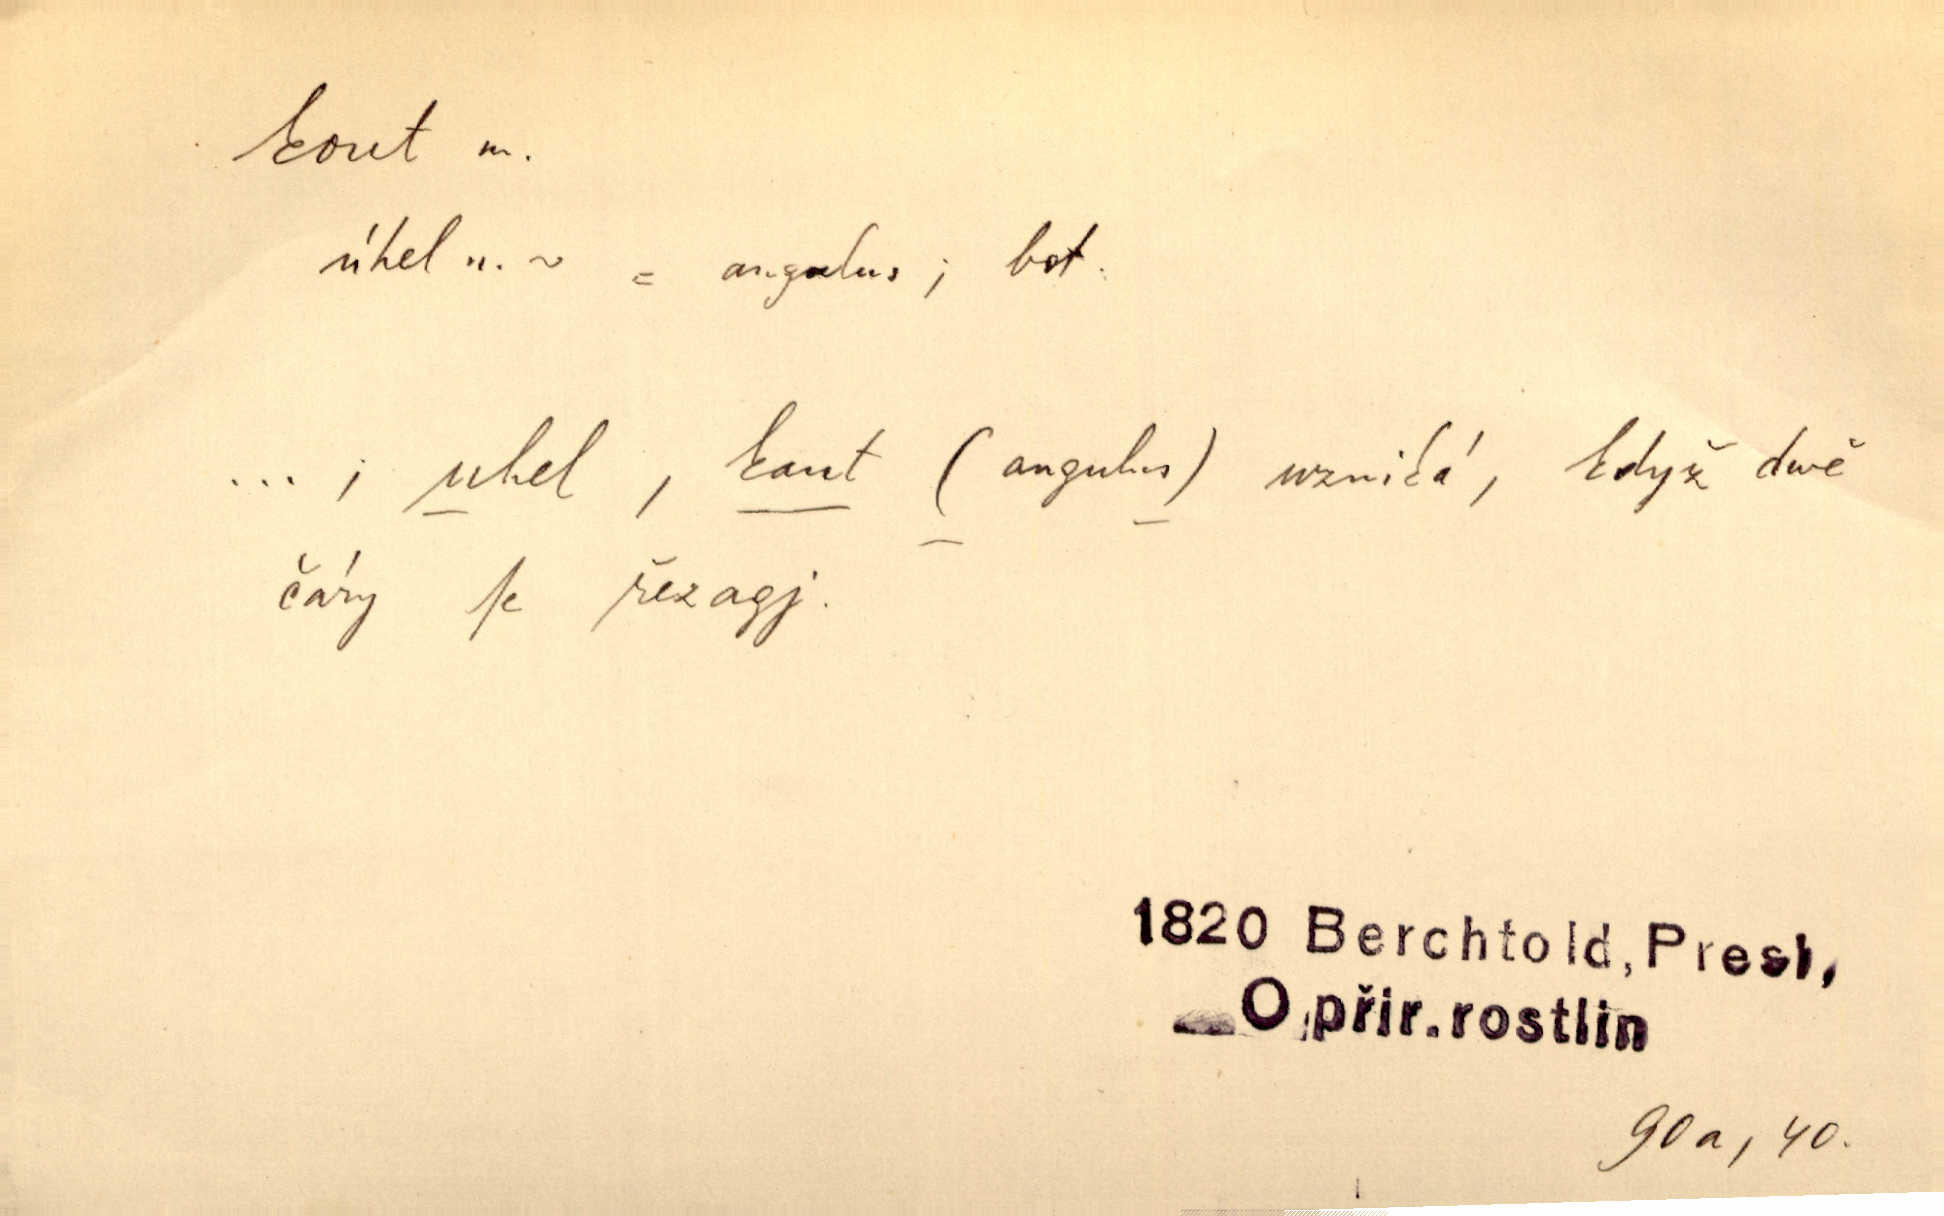 kout m.
úhel n. ~ = angulus; bot.
...; uhel, kaut (angulus) wzniká, když dwě
čáry se řezagj.
1820 Berchtold, Presl,
O přir. rostlin
90a, 40.